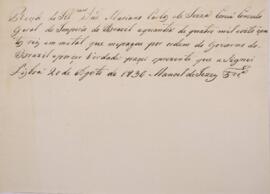 Recebi do Ill.mo Snr. Mariano Carlos de Souza Corrêa Consul
Geral do Imperio do Brazil a quantia de quatro mil cento e
reis em metal que me pagou por ordem do Governo do
Brazil e por ser verdade passei o presente que assignei
Lisboa 20 de Agosto de 1836 Manoel de Souza